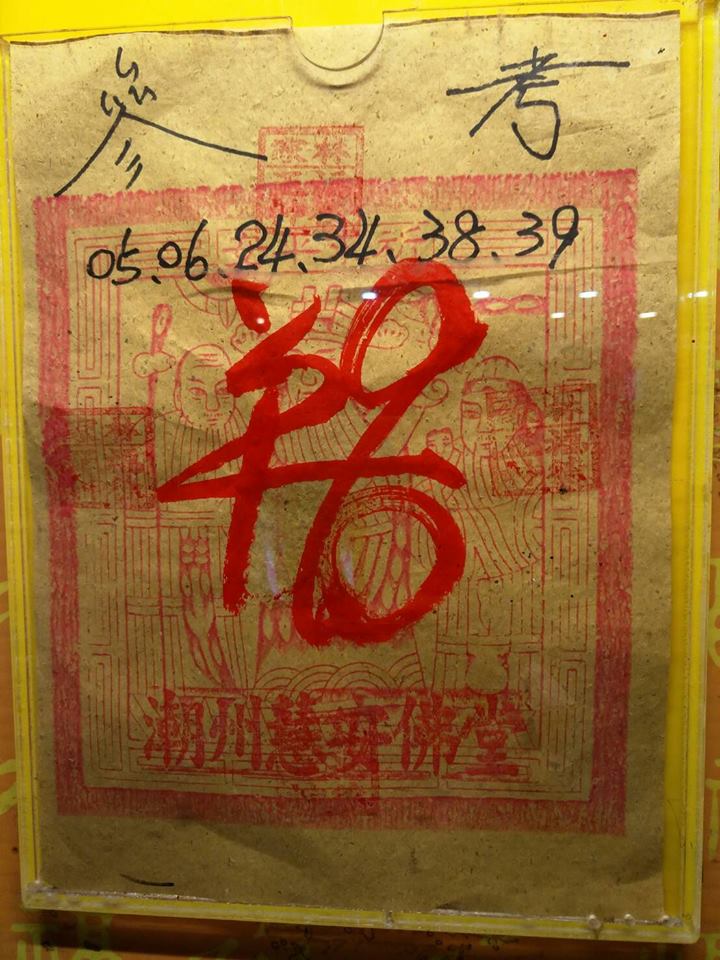 參 考
05.06.24.34.38.39
福
潮州慈安佛堂